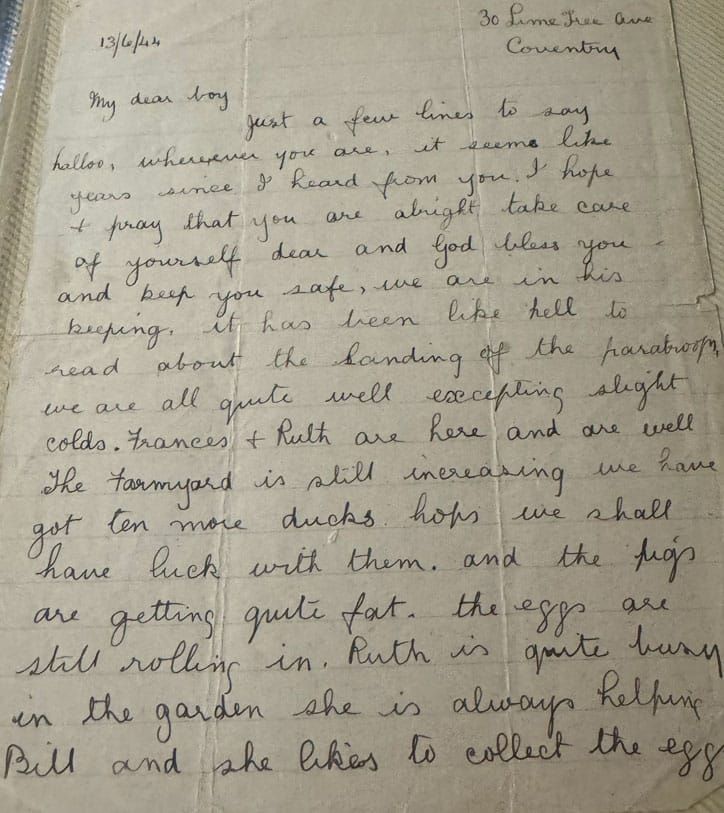 30 Lime Tree Ave
Coventry
13/6/44
My dear boy
Just a few lines to say
halloo, wherever you are, it seems like
years since I heard from you. I hope
& pray that you are alright take care
of yourself dear and God bless you
and keep you safe, we are in his
keeping. it has been like hell to
read about the landing of the paratroops,
we are all quite well excepting slight
colds. Frances & Ruth are here and are well
The Farmyard is still increasing we have
got ten more ducks hops we shall
have luck with them. and the pigs
are getting quite fat. the eggs are
still rolling in. Ruth is quite busy
in the garden she is always helping
Bill and she likes to collect the egg